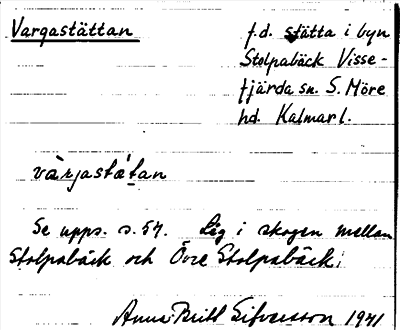 Vargastättan
f.d. stätta i byn
Stolpabäck Visse-
fjärda sn. S. Möre
hd. Kalmar l.
vàrjastä́tan
Se upps. s. 57. Låg i skogen mellan
Stolpabäck och Övre Stolpabäck.
Anna-Britt Sifversson 1941